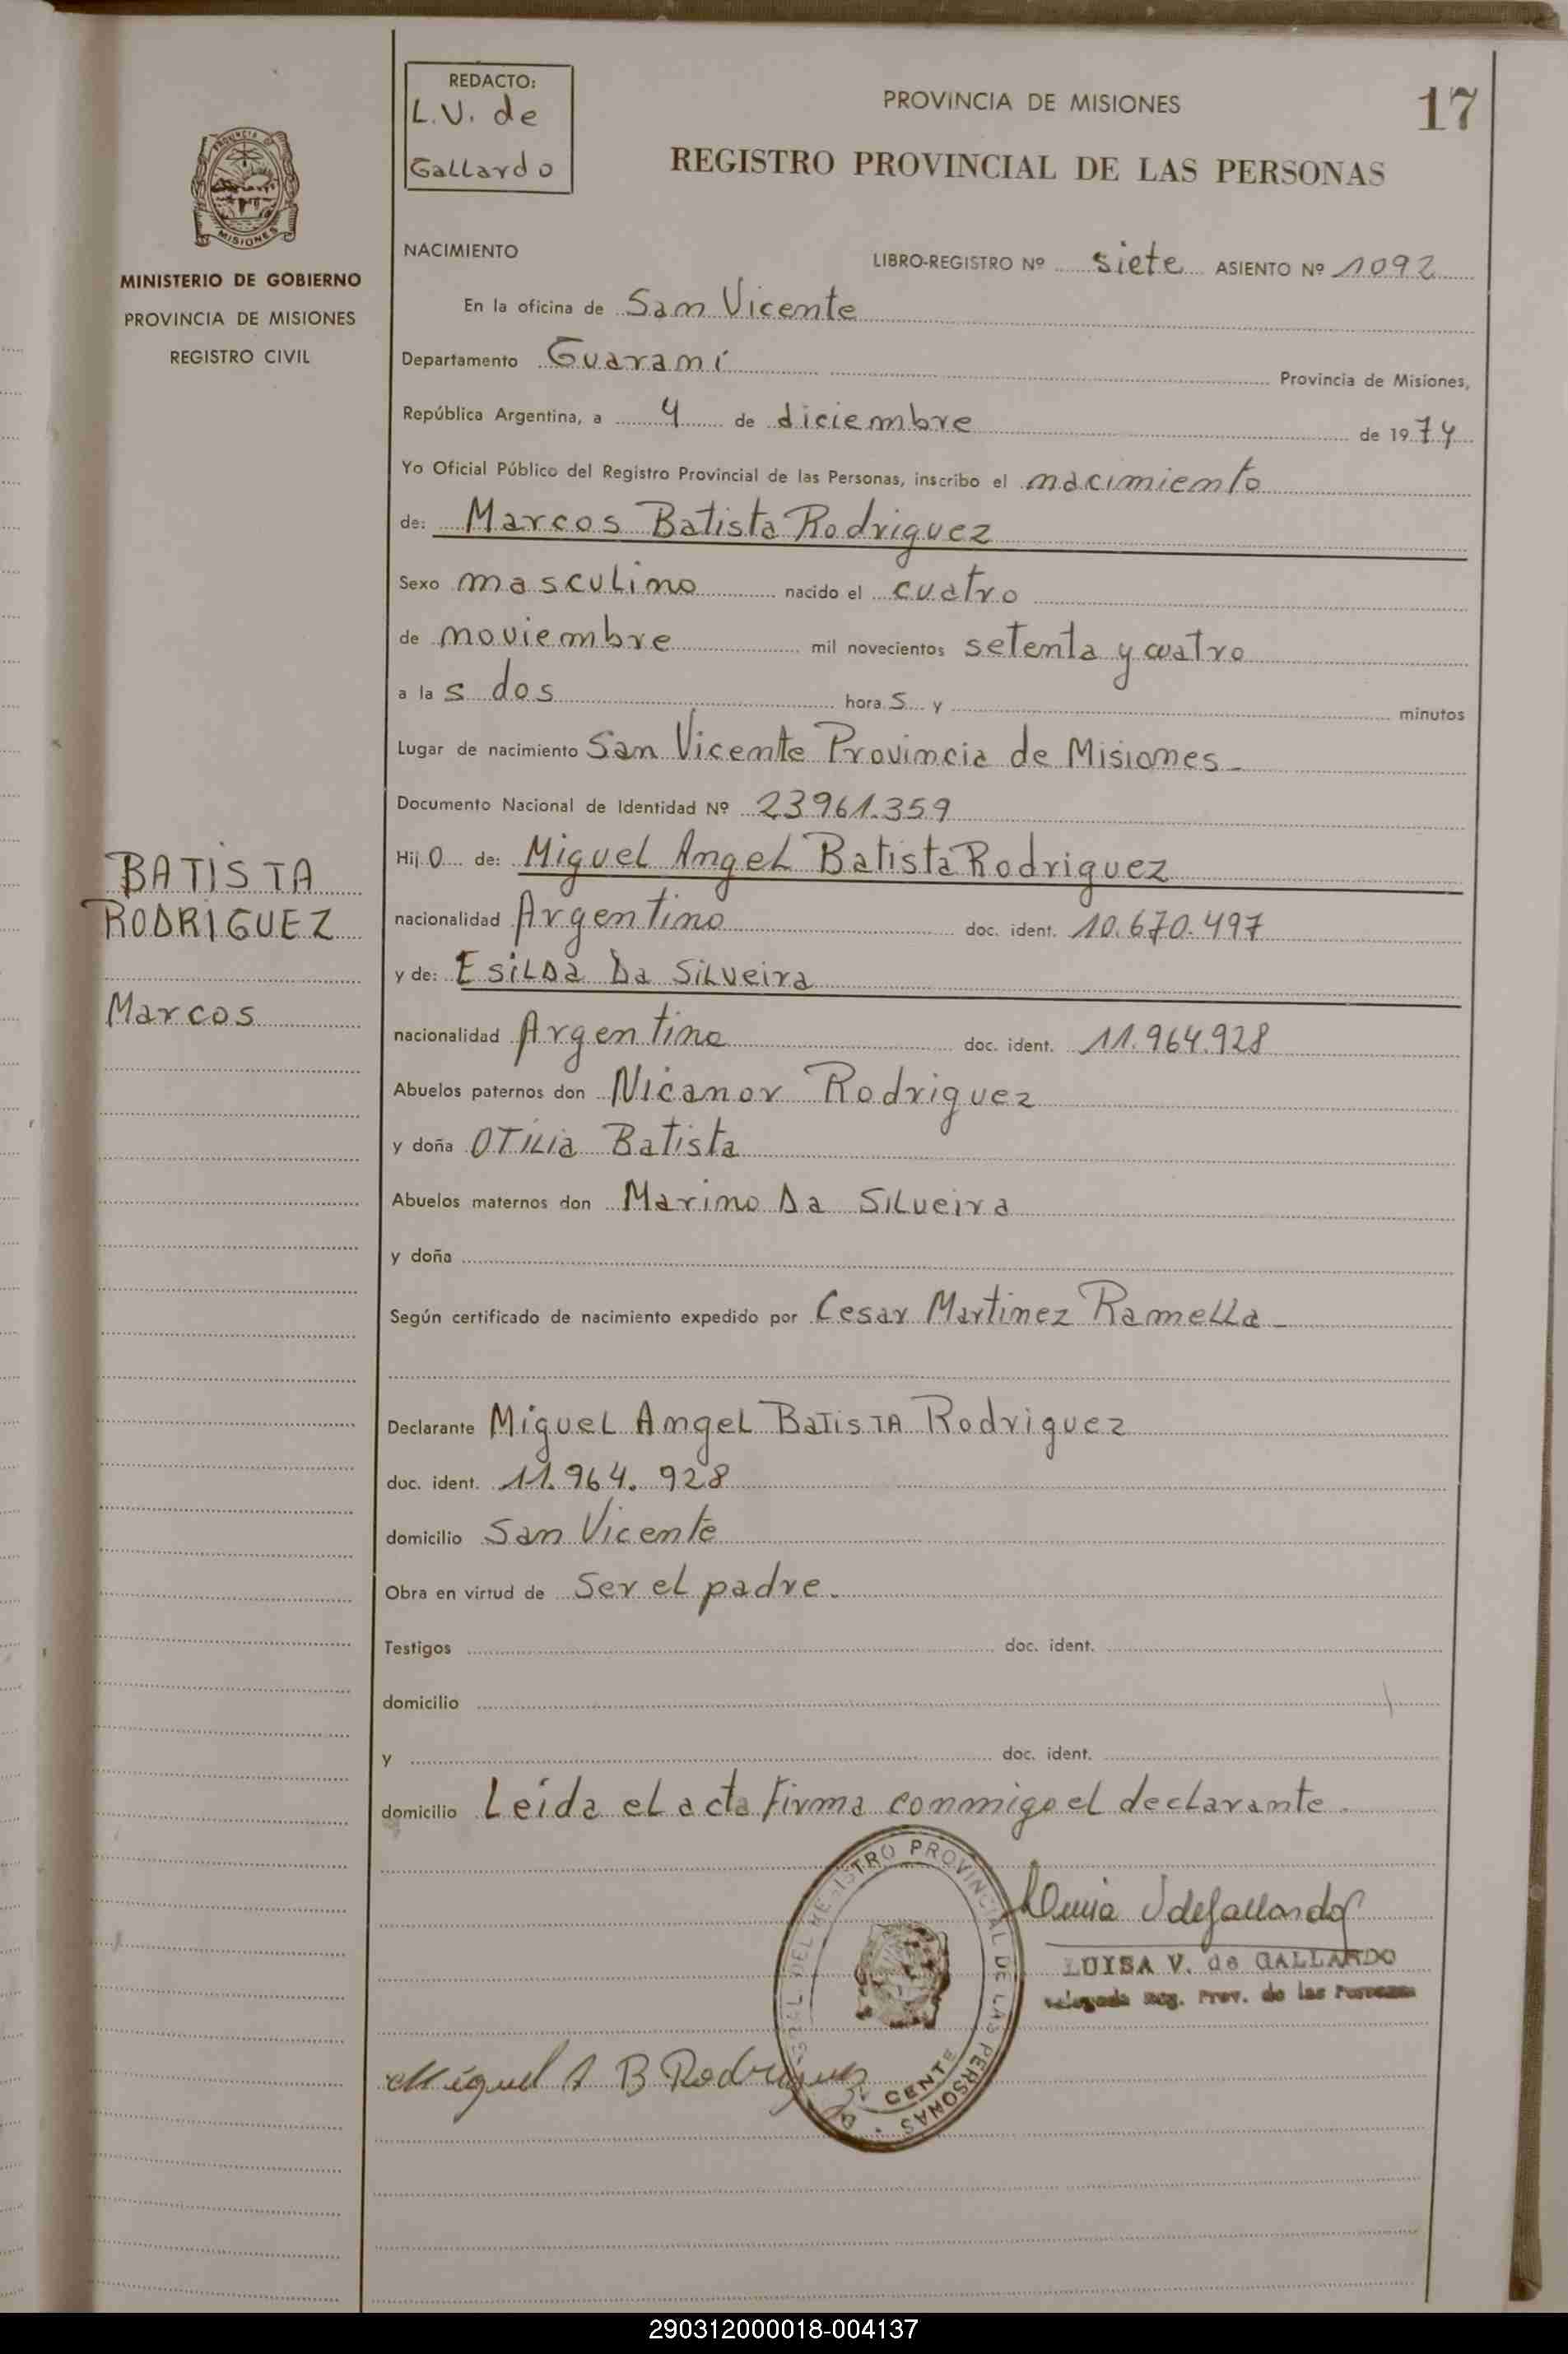 REDACTO:
L.V. de
Gallardo
PROVINCIA DE MISIONES
17
REGISTRO PROVINCIAL DE LAS PERSONAS
PROVINCIA DE
MISIONES
MINISTERIO DE GOBIERNO
PROVINCIA DE MISIONES
REGISTRO CIVIL
NACIMIENTO
LIBRO-REGISTRO Nº siete ASIENTO Nº 1092
En la oficina de San Vicente
Departamento Guaraní Provincia de Misiones,
República Argentina, a 4 de diciembre de 1974
Yo Oficial Público del Registro Provincial de las Personas, inscribo el nacimiento
de: Marcos Batista Rodriguez
Sexo masculino nacido el cuatro
de noviembre mil novecientos setenta y cuatro
a las dos horas y minutos
Lugar de nacimiento San Vicente Provincia de Misiones
Documento Nacional de Identidad Nº 23961.359
Hijo de: Miguel Angel Batista Rodriguez
BATISTA
RODRIGUEZ
Marcos
nacionalidad Argentino doc. ident. 10.670.497
y de: Esilda Da Silveira
nacionalidad Argentina doc. ident. 11.964.928
Abuelos paternos don Nicanor Rodriguez
y doña Otilia Batista
Abuelos maternos don Marino Da Silveira
y doña
Según certificado de nacimiento expedido por Cesar Martinez Ramella
Declarante Miguel Angel Batista Rodriguez
doc. ident. 11.964.928
domicilio San Vicente
Obra en virtud de ser el padre.
Testigos doc. ident.
domicilio
y doc. ident.
domicilio Leida el acta firma conmigo el declarante.
REGISTRO PROVINCIAL DE LAS PERSONAS
CENTE
LUISA V. de GALLARDO
Reg. Prov. de las Personas
Miguel A B Rodriguez
290312000018-004137